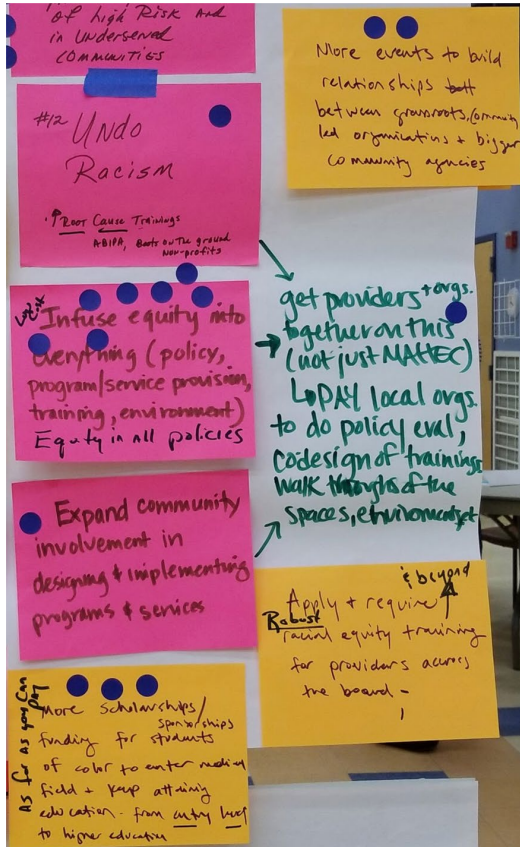 of High Risk And
in Underserved
COMMUNITIES
#12 Undo
Racism
Root Cause Trainings
ABIPA, Boots on the ground
non-profits
Infuse equity into
everything (policy,
program/service provision,
training, environment)
Equity in all policies
Expand community
involvement in
designing & implementing
programs & services
As for As you Can
Pay
More Scholarships/
sponsorships
funding for students
of color to enter medical
field & keep attaining
education - from entry level
to higher education
More events to build
relationships
between grassroots/community
led organizations + bigger
community agencies
get providers + orgs.
together on this
(not just MATTEC)
PAY local orgs.
to do policy eval,
codesign of trainings
walk throughs of the
spaces, environment
& beyond
Apply + require
Robust
racial equity training
for providers across
the board -